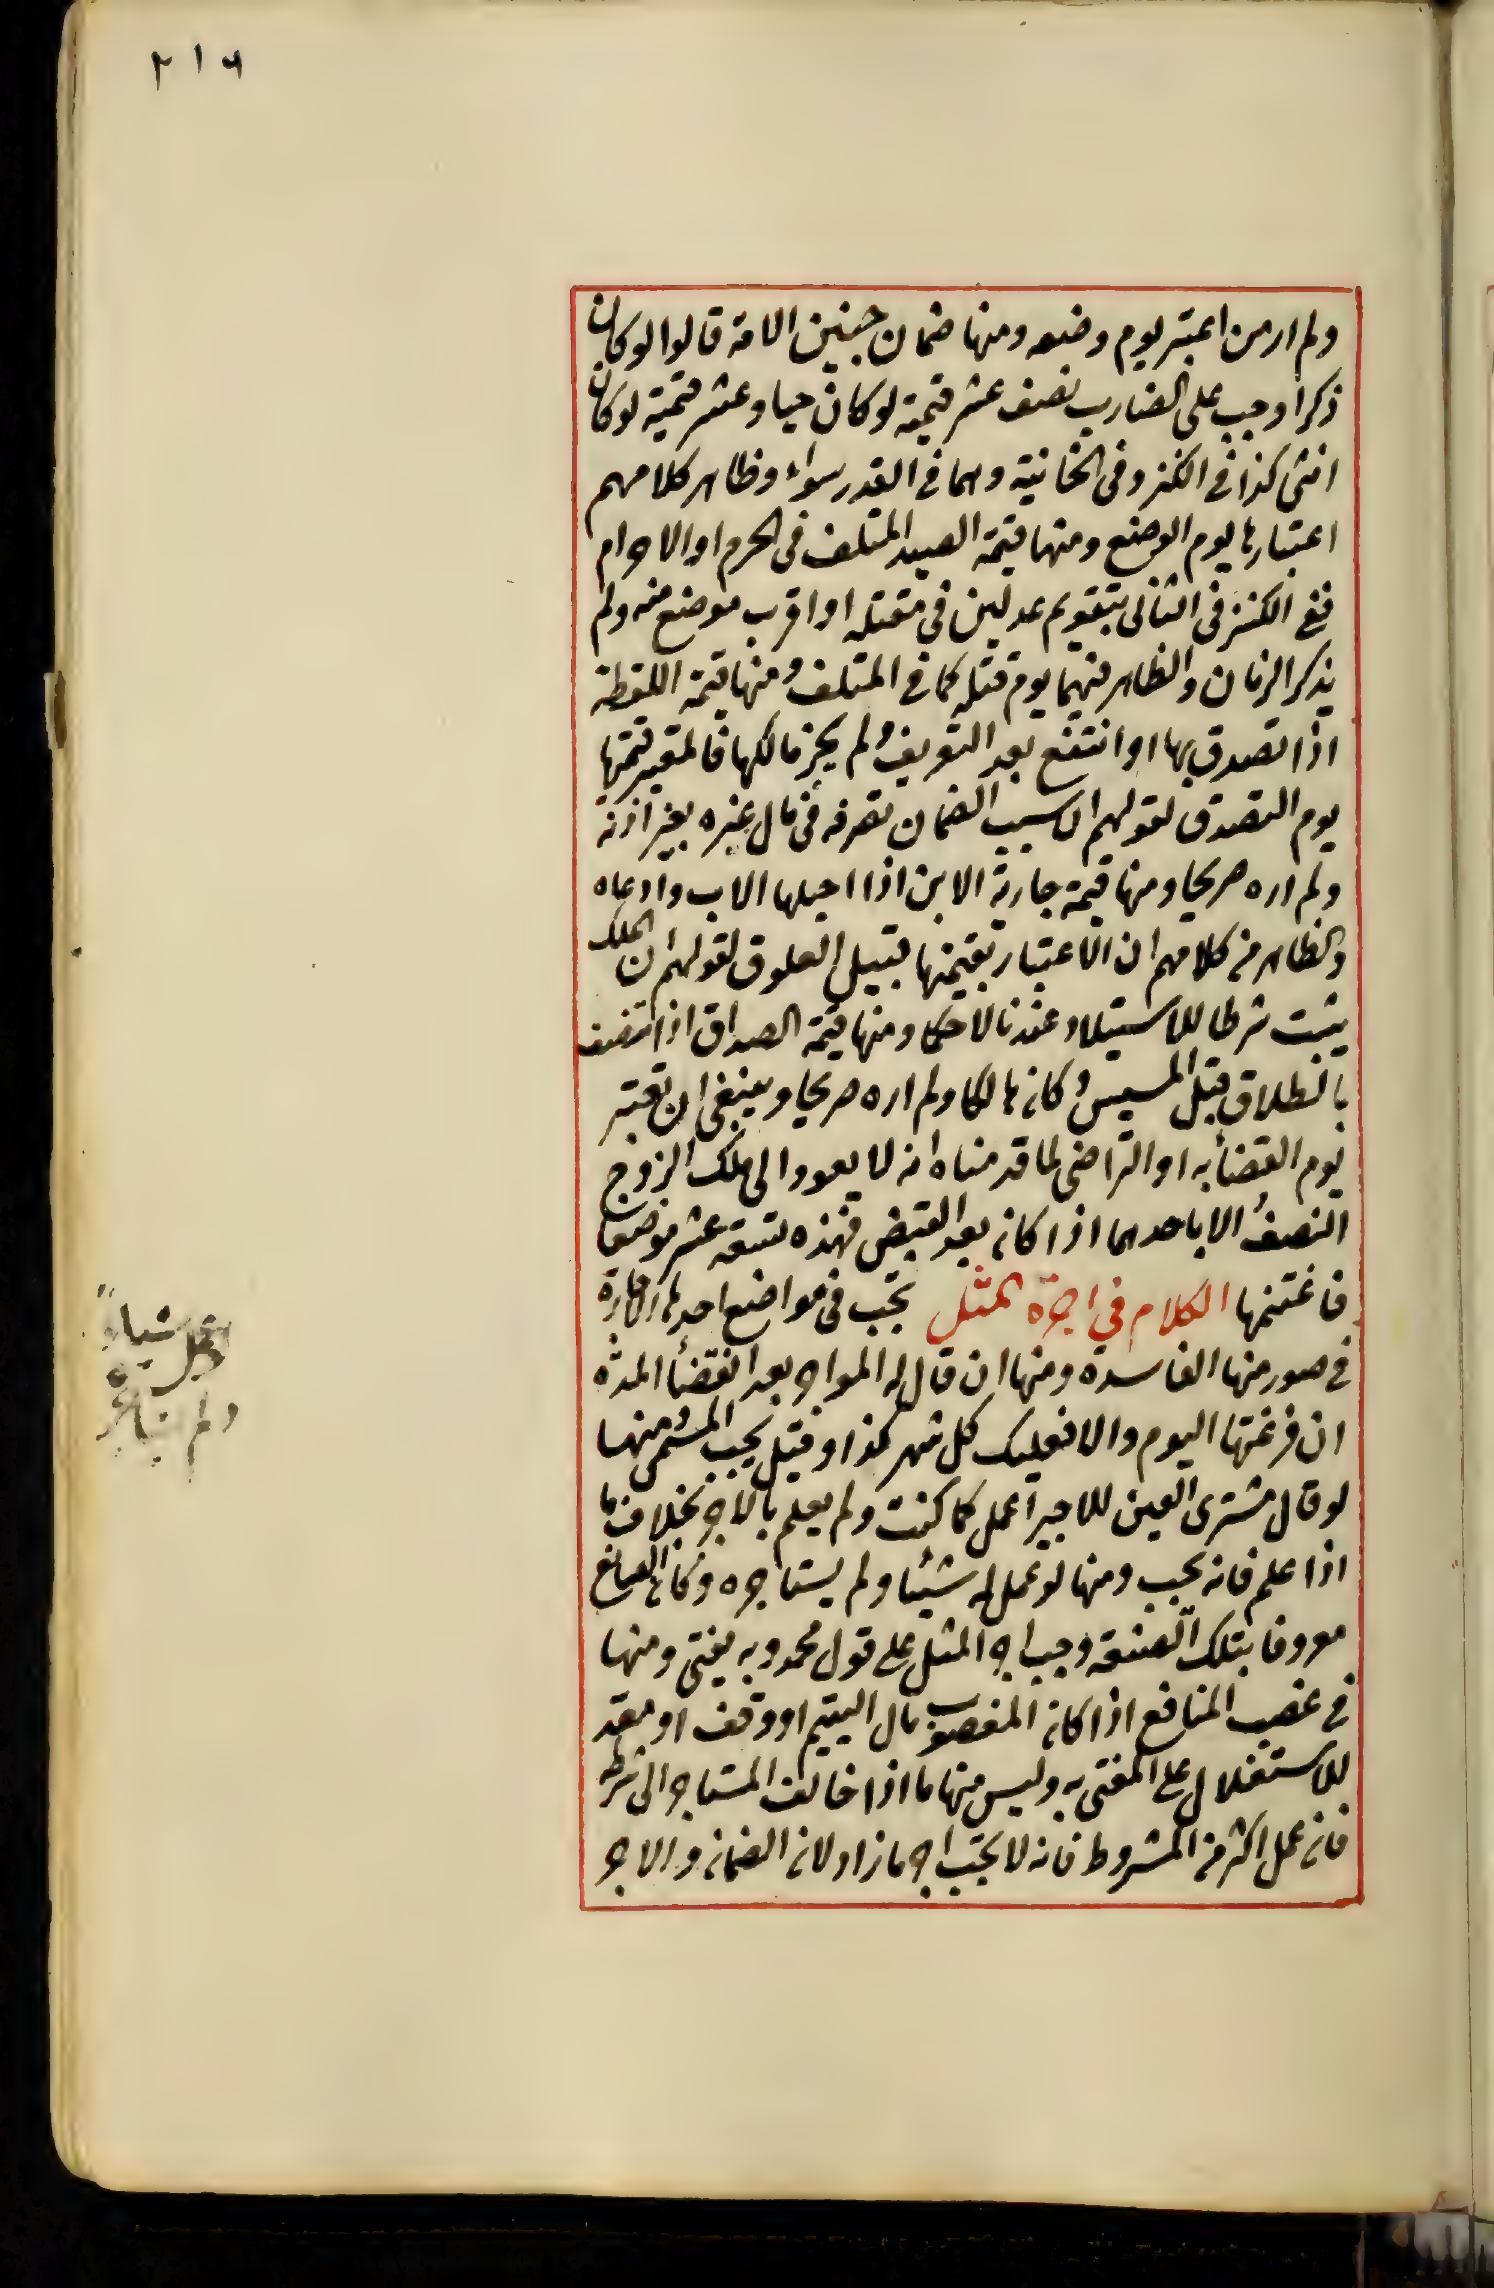 ٢١٦
ولم ار من اعتبر يوم وضعه ومنها ضمان جنين الامة قالوا لو كان
ذكرا وجب على الضارب نصف عشر قيمته لو كان حيا وعشر قيمته لو كان
انثى كذا في الكنز وفي الخانية وهما في القدر سواء وظاهر كلامهم
اعتبارها يوم الوضع ومنها قيمة الصيد المتلف في الحرم او الاحرام
ففي الكنز في الثاني بتقويم عدلين في مقتله او اقرب موضع منه ولم
يذكر الزمان والظاهر فيهما يوم قتله كما في المتلف ومنها قيمة اللقطة
اذا تصدق بها او انتفع بعد التعريف ولم يجز مالكها فالمعتبر قيمتها
يوم التصدق لقولهم ان سبب الضمان تصرفه في مال غيره بغير اذنه
ولم اره صريحا ومنها قيمة جارية الابن اذا احبلها الاب وادعاه
والظاهر من كلامهم ان الاعتبار بقيمتها قبيل العلوق لقولهم ان الملك
يثبت شرطا للاستيلاد عندنا لا حكما ومنها قيمة الصداق اذا انتصف
بالطلاق قبل المسيس وكان هالكا ولم اره صريحا وينبغي ان تعتبر
يوم القضأ به او التراضي لما قدمناه انه لا يعود الى ملك الزوج
النصف الا باحدهما اذا كان بعد القبض فهذه تسعة عشر موضعا
فاغتنمها الكلام في اجرة المثل تجب في مواضع احدها الاجارة
في صور منها الفاسدة ومنها ان قال له المواجر بعد انقضأ المدة
ان فرغتها اليوم والا فعليك كل شهر كذا وقيل يجب المسمى ومنها
لو قال مشتري العين للاجير اعمل كما كنت ولم يعلم بالاجر بخلاف ما
اذا علم فانه يجب ومنها لو عمل له شيئا ولم يستاجره وكان الصانع
معروفا بتلك الصنعة وجب اجر المثل على قول محمد وبه يفتى ومنها
في غصب المنافع اذا كان المغصوب مال اليتيم او وقف او معد
للاستغلال على المفتى به وليس منها ما اذا خالف المستاجر الى شرطه
فان عمل اكثر من المشروط فانه لا يجب اجر ما زاد لان الضمان والاجر